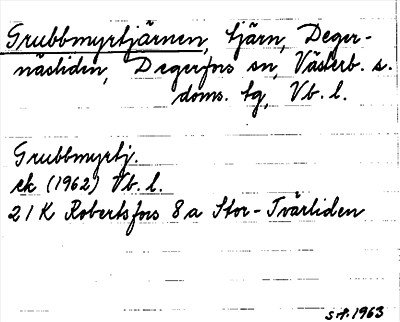 Grubbmyrtjärnen, tjärn, Deger-
näsliden, Degerfors sn, Västerb. s.
doms. tg, Vb. l.
Grubbmyrtj.
ek (1962) Vb. l.
21 K Robertsfors 8 a Stor-Tvärliden
s.f. 1963